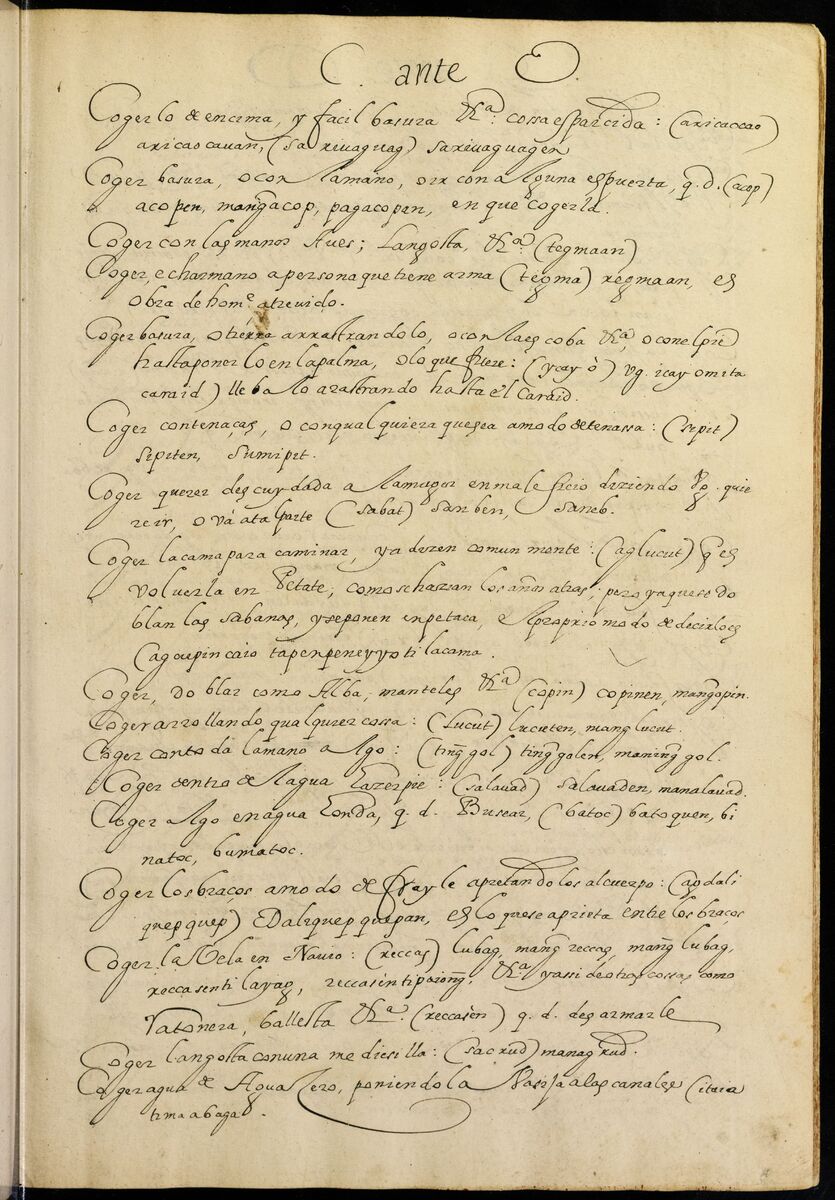 C. ante O.
Coger lo de encima, y facil basura &rª. cossa esparcida: (aricaccao)
aricaocauan, (sarivaguag) sarivaguagen
Coger basura, o con la mano, o ir con alguna espuerta, q. d. (acop)
acopen, mangacop, pagacopan, en que cogerla.
Coger con las manos Aues; Langosta, &rª. (tegmaan)
Coger, echar mano a persona que tiene arma (tegma) regmaan, es
obra de home. atreuido.
Coger basura, o tierra arrastrandolo, o con la escoba &rª, o con el pie
hasta ponerlo en la palma, o lo que fuere: (ycay ò) vg. icay omita
caraid) lleba lo arastrando hasta el Caraid.
Coger con tenaças, o con qualquiera que sea a modo de tenassa: (sipit)
sipiten, sumipit.
Coger querer descuydada a la muger en maleficio diziendo Vg. quie
re ir, o vá a tal parte (sabat) sanben, saneb.
Coger la cama para caminar, ya dizen comun monte: (aglucut) q es
volverla en Petate; como se hazian los años atras; pero ya que se do
blan las sabanas, y se ponen en petaca, el proprio modo de decirlo es
Cagoupin caio tapenpeneyyoti la cama.
Coger, doblar como Alba, manteles &rª (copin) copinen, mangopin.
Coger arrollando qualquier cossa: (Lucut) lucuten, manglucut.
Coger con toda la mano algo: (ting̃gol) ting̃golen, maning̃gol.
Coger dentro del agua Lazerpie: (salauad) salauaden, manalauad.
Coger algo en agua honda, q. d. Buscar, (batoc) batoquen, bi
natoc, bumatoc.
Coger los braços a modo de frayle apretandolos al cuerpo: (agdali
quepquep) Daliquepquepan, es lo que se aprieta entre los braços
Coger la Vela en Nauio: (reccas) lubag, mang̃reccas, mang̃lubag,
reccasenti layag, reccasentipoiong̃, &rª. y assi de otras cossas como
ratonera, ballesta &rª. (reccasèn) q. d. desarmarle
Coger langosta con una mediesilla: (sacrud) managrud.
Coger agua de Aguazero, poniendo la Vasija a las canales (itaia
tima abaga.